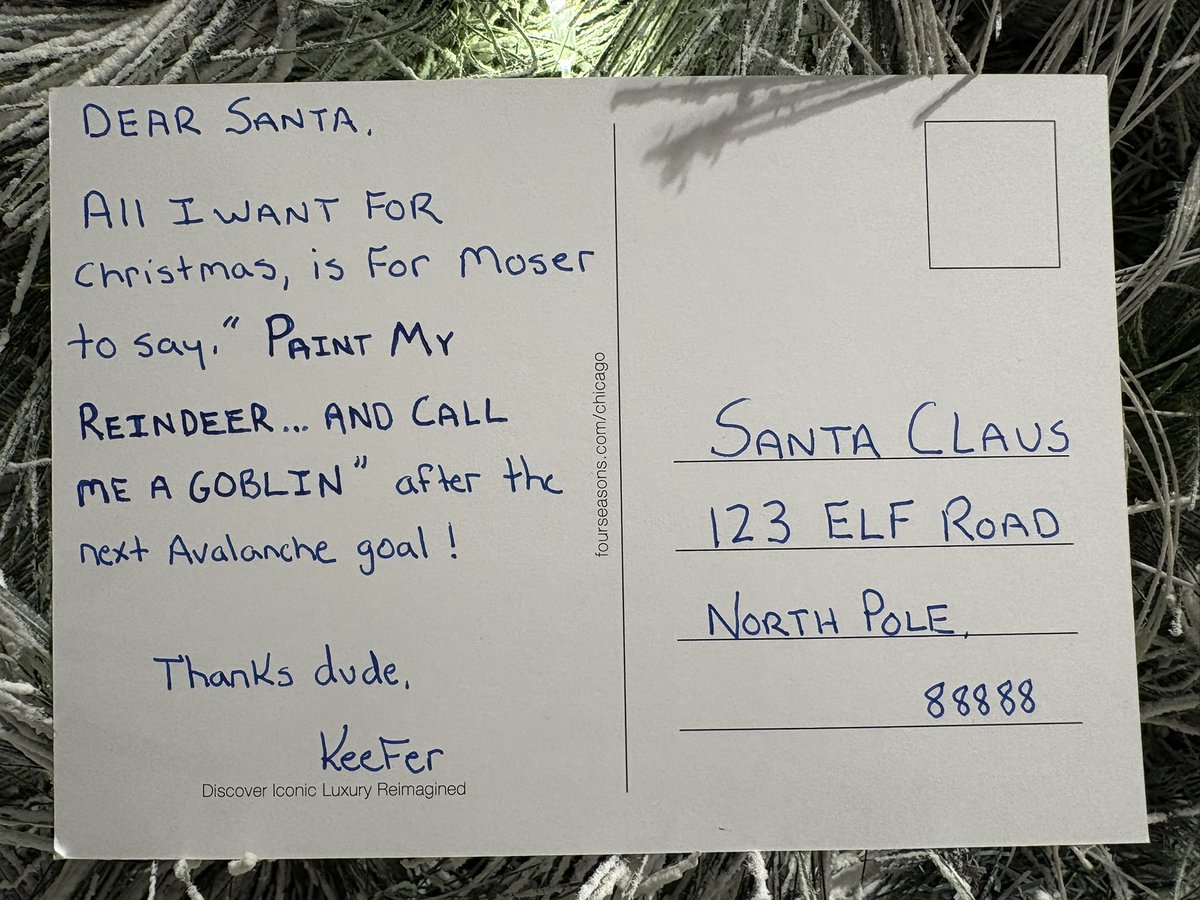 DEAR SANTA,
All I WANT FOR
Christmas, is For Moser
to say," PAINT MY
REINDEER... AND CALL
ME A GOBLIN" after the
next Avalanche goal!
Thanks dude,
KeeFer
Discover Iconic Luxury Reimagined
fourseasons.com/chicago
SANTA CLAUS
123 ELF ROAD
NORTH POLE,
88888